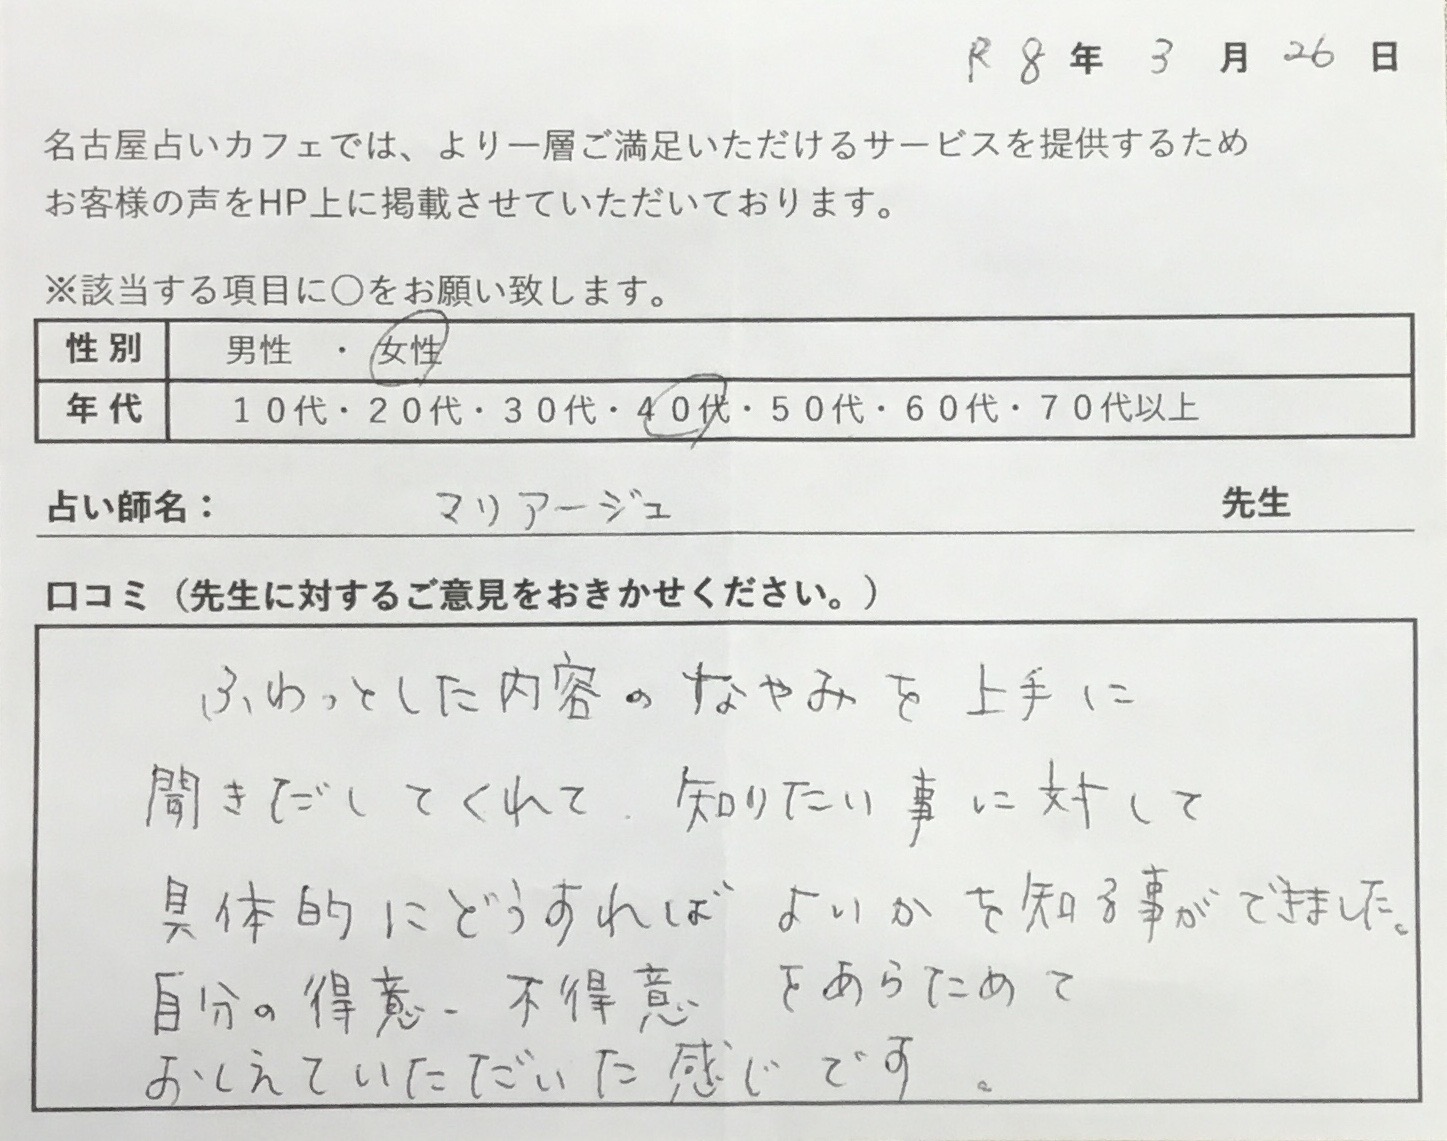 R 8 年 3 月 26 日
名古屋占いカフェでは、より一層ご満足いただけるサービスを提供するため
お客様の声をHP上に掲載させていただいております。
※該当する項目に〇をお願い致します。
性別 男性 ・ 女性
年代 10代・20代・30代・40代・50代・60代・70代以上
占い師名： マリアージュ 先生
口コミ（先生に対するご意見をおきかせください。）
ふわっとした内容のなやみを上手に
聞きだしてくれて、知りたい事に対して
具体的にどうすればよいかを知る事ができました。
自分の得意・不得意をあらためて
おしえていただいた感じです。